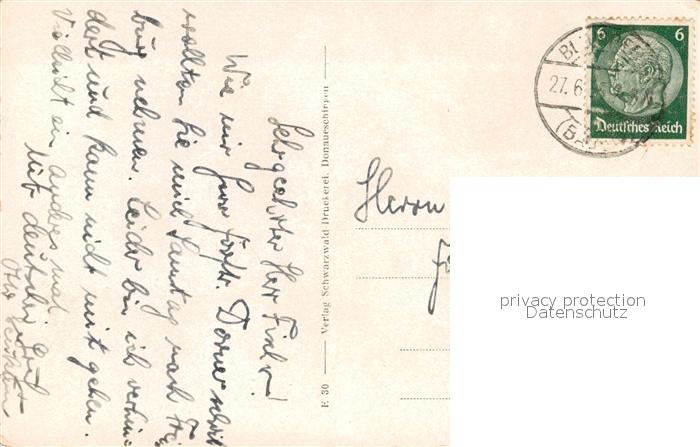 Sehrgeehrter Herr Fink!
Wie mir Herr Forstr. Dorner schrieb
wollten Sie mich Samstag nach
burg nehmen. Leider bin ich verhin-
dert und kann nicht mit gehen.
Vielleicht ein andres mal
Mit deutschem Gruß
Ihr
E 80 — Verlag Schwarzwald-Druckerei, Donaueschingen
27.6.
6 6
Deutsches Reich
Herrn
privacy protection
Datenschutz